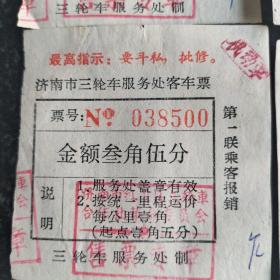 三轮车服务处制
最高指示：要斗私，批修。
济南市三轮车服务处客车票
票号：No 038500
金额叁角伍分
说明
1.服务处盖章有效
2.按统一里程运价
每公里壹角
（起点壹角五分）
第一联乘客报销
三轮车服务处制
售票